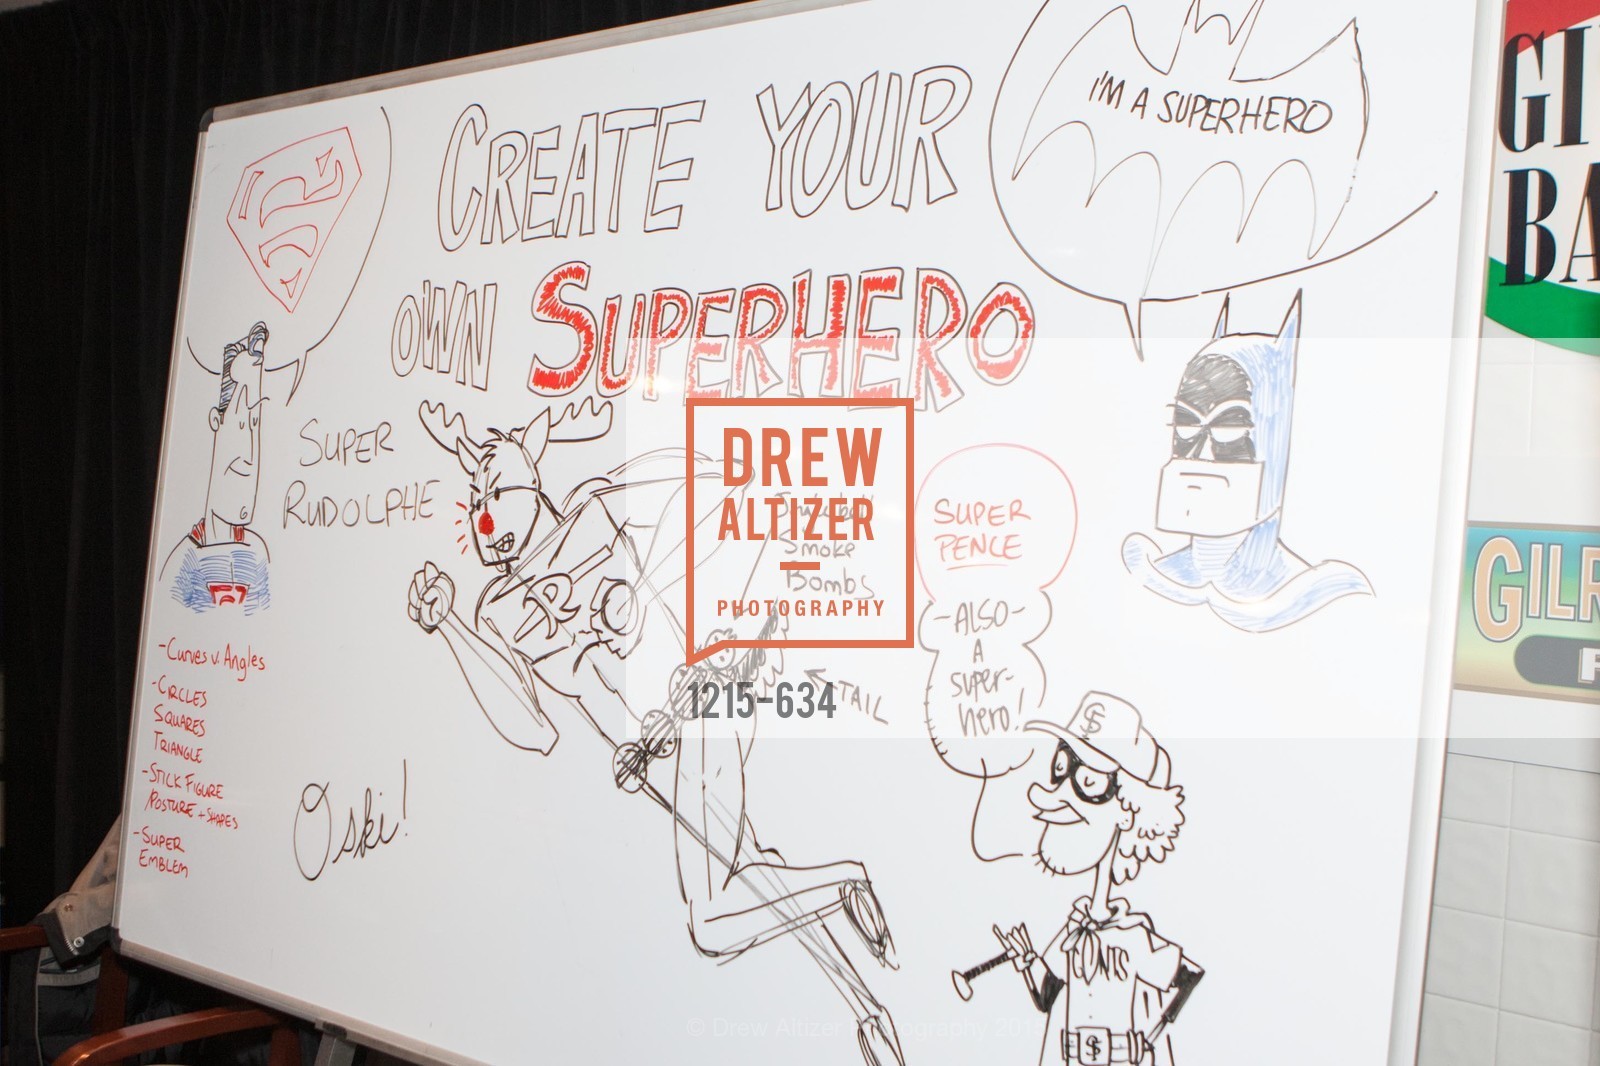 CREATE YOUR
OWN SUPERHERO
I'M A SUPERHERO
SUPER
RUDOLPHE
Smoke
Bombs
SUPER
PENCE
-ALSO-
A
super-
hero!
TAIL
- Curves v. Angles
- CIRCLES
SQUARES
TRIANGLE
- STICK FIGURE
/POSTURE + SHAPES
- SUPER
EMBLEM
Oski!
R
SF
GIANTS
SF
GI
BA
GILR
F
DREW
ALTIZER
PHOTOGRAPHY
1215-634
© Drew Altizer Photography